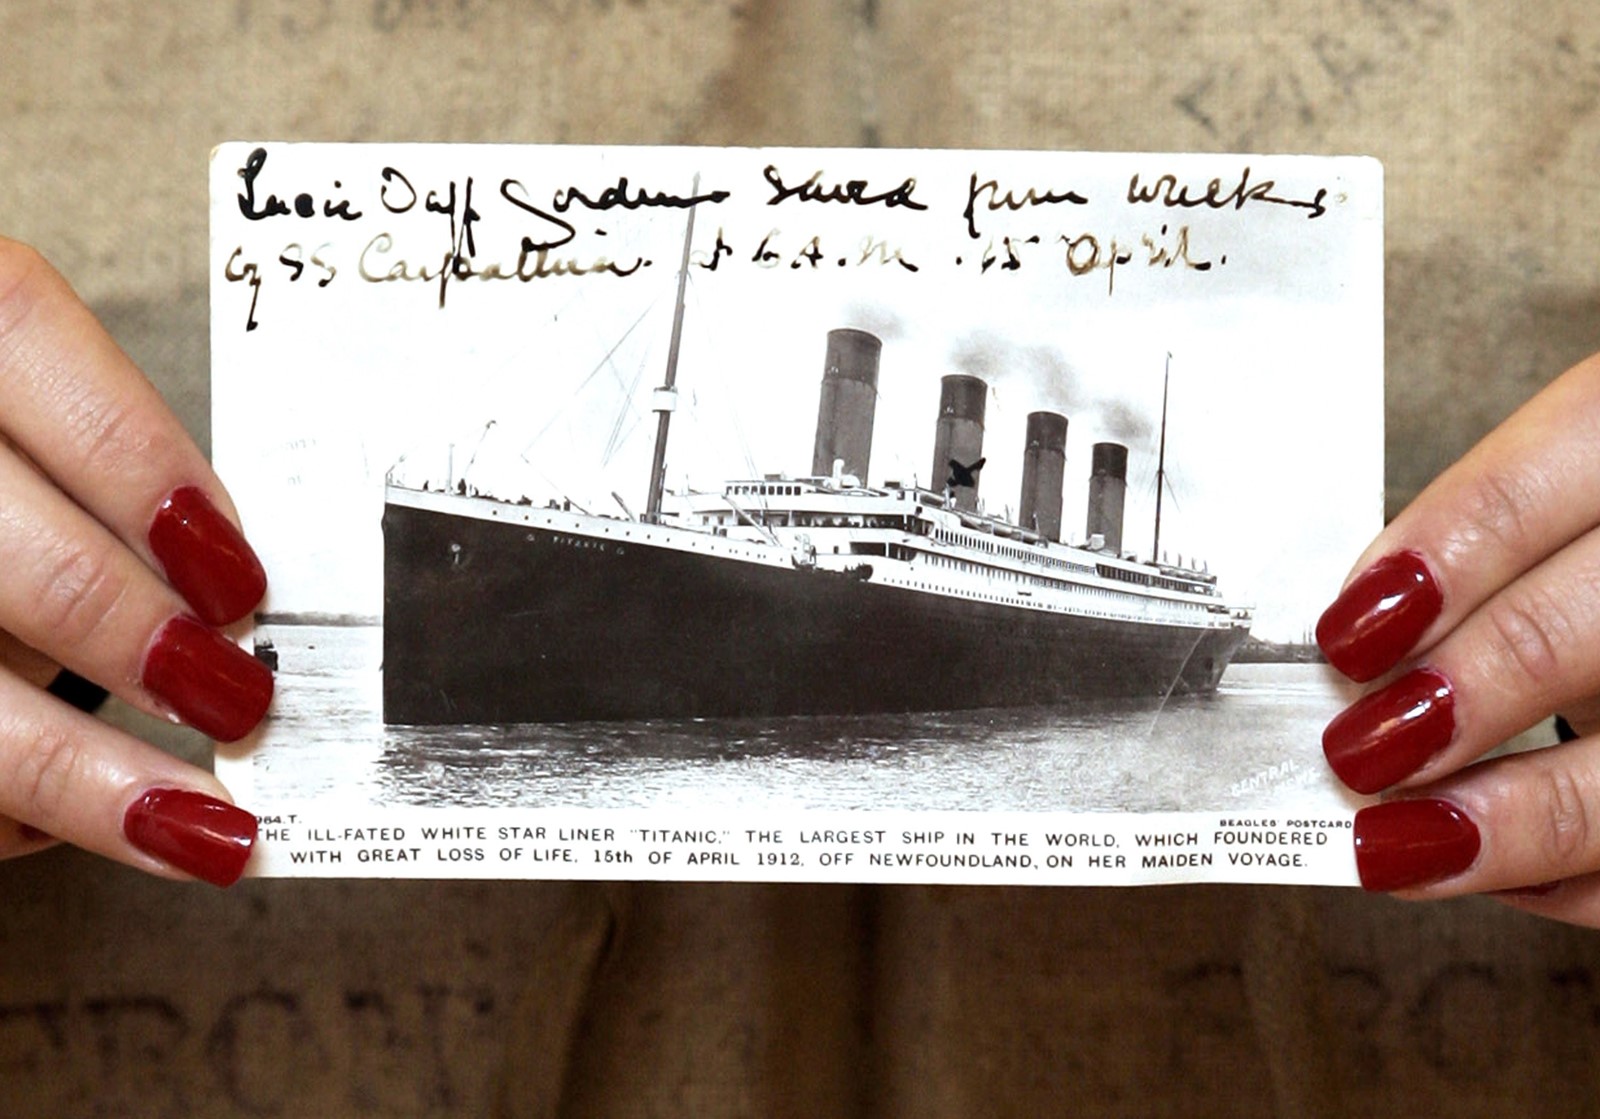 Lucie Duff Gordon saved from wreck
by SS Carpathia. at 6 A.M. 15 April.
TITANIC
CENTRAL
984.T.
BEAGLES' POSTCARD
THE ILL-FATED WHITE STAR LINER "TITANIC," THE LARGEST SHIP IN THE WORLD, WHICH FOUNDERED
WITH GREAT LOSS OF LIFE, 15th OF APRIL 1912, OFF NEWFOUNDLAND, ON HER MAIDEN VOYAGE.